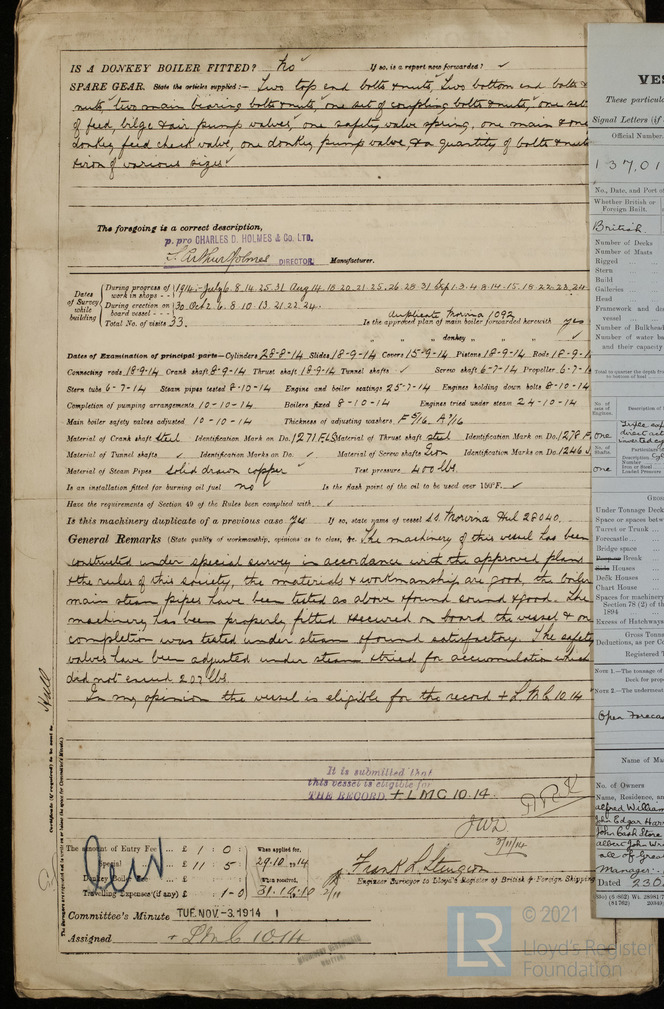 IS A DONKEY BOILER FITTED? No If so, is a report now forwarded?
SPARE GEAR. State the articles supplied:- Two top end bolts & nuts, Two bottom end bolts &
nuts, two main bearing bolts & nuts, one set of coupling bolts & nuts, one set
of feed, bilge & air pump valves, one safety valve spring, one main & one
donkey feed check valve, one donkey pump valve, & a quantity of bolts & nuts
& iron of various sizes
The foregoing is a correct description,
p. pro CHARLES D. HOLMES & Co. LTD.
Arthur Holmes DIRECTOR. Manufacturer.
Dates of Survey while building
During progress of work in shops - - 1914:- July 6. 8. 14. 25. 31 Aug 14. 18. 20. 21. 25. 26. 28. 31 Sep 1. 3. 4. 8. 14. 15. 18. 22. 23. 24
During erection on board vessel - - - 30. Oct 2. 6. 8. 10. 13. 21. 22. 24.
Total No. of visits 33.
duplicate Morvina 1092
Is the approved plan of main boiler forwarded herewith yes
" " " donkey " " "
Dates of Examination of principal parts—Cylinders 28-8-14 Slides 18-9-14 Covers 15-9-14 Pistons 18-9-14 Rods 18-9-1
Connecting rods 18-9-14 Crank shaft 8-9-14 Thrust shaft 18-9-14 Tunnel shafts Screw shaft 6-7-14 Propeller 6-7-1
Stern tube 6-7-14 Steam pipes tested 8-10-14 Engine and boiler seatings 25-7-14 Engines holding down bolts 8-10-14
Completion of pumping arrangements 10-10-14 Boilers fixed 8-10-14 Engines tried under steam 24-10-14
Main boiler safety valves adjusted 10-10-14 Thickness of adjusting washers F 5/16 A 7/16
Material of Crank shaft steel Identification Mark on Do. 1271 FLS Material of Thrust shaft steel Identification Mark on Do. 1278 F
Material of Tunnel shafts Identification Marks on Do. Material of Screw shafts Iron Identification Marks on Do. 1246
Material of Steam Pipes solid drawn copper Test pressure 400 lbs.
Is an installation fitted for burning oil fuel no Is the flash point of the oil to be used over 150°F.
Have the requirements of Section 49 of the Rules been complied with
Is this machinery duplicate of a previous case yes If so, state name of vessel s.s. Morvina Hul 28040.
General Remarks (State quality of workmanship, opinions as to class, &c. The machinery of this vessel has been
constructed under special survey in accordance with the approved plans
& the rules of this society, the materials & workmanship are good, the boiler
main steam pipes have been tested as above & found sound & good. The
machinery has been properly fitted & secured on board the vessel & on
completion was tested under steam & found satisfactory. The safety
valves have been adjusted under steam & tried for accumulation which
did not exceed 207 lbs.
In my opinion the vessel is eligible for the record + L.M.C. 10.14
It is submitted that
this vessel is eligible for
THE RECORD. + LMC 10.14.
JWD
5/11/14
Certificate (if required) to be sent to Hull
The amount of Entry Fee .. £ 1 : 0 : When applied for,
Special ... £ 11 : 5 : 29.10.1914
Donkey Boiler Fee ... £ : : When received,
Travelling Expenses (if any) £ : 1-0
Frank L. Sturgeon
Engineer Surveyor to Lloyd's Register of British & Foreign Shipping
Committee's Minute TUE. NOV. -3. 1914
Assigned + LMC 10.14
VES
These particula
Signal Letters (if
Official Number.
137,01
No., Date, and Port of
Whether British or
Foreign Built.
British
Number of Decks
Number of Masts
Rigged
Stern
Build
Galleries
Head
Framework and de
vessel
Number of Bulkhead
Number of water ba
and their capacity
Total to quarter the depth fr
to bottom of keel
No. of sets of Engines.
Description of
one
No. of Shafts.
Particulars
Description
Number
Iron or Steel
Loaded Pressure
one
Gross
Under Tonnage Deck
Space or spaces betw
Turret or Trunk
Forecastle
Bridge space
Break
Houses
Deck Houses
Chart House
Spaces for machinery
Section 78 (2) of th
1894
Excess of Hatchways
Gross Tonn
Deductions, as per Co
Registered T
NOTE 1.—The tonnage of
Deck for prope
NOTE 2.—The undermen
Open Foreca
Name of Mas
No. of Owners
Name, Residence, and
Alfred William
John Edgar Har
John Cash Stone
all of Grea
Manager:-
Dated 23.0
© 2021
LR
Lloyd's Register
Foundation